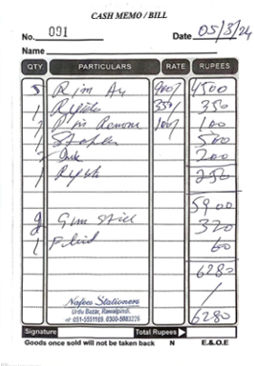 CASH MEMO / BILL
No. 091 Date 05/3/24
Name
QTY PARTICULARS RATE RUPEES
5 Rim A4 900/ 4500
1 350/ 350
2 Pin Remover 100/ 100
1 Stapler 500
2 Ink 200
1 250
5900
Gum Stick 320
1 60
6280
/
6280
Nafees Stationers
Urdu Bazar, Rawalpindi.
Signature Total Rupees
Goods once sold will not be taken back N E.&O.E